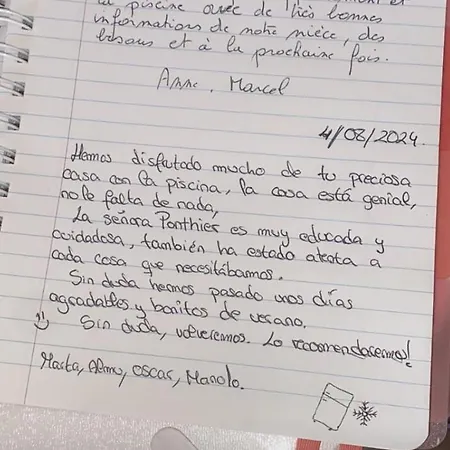 la piscine avec de très bonnes
informations de notre nièce, des
bisous et à la prochaine fois.
Anne. Marcel
4/08/2024.
Hemos disfrutado mucho de tu preciosa
casa con la piscina, la casa está genial,
no le falta de nada,
La señora Ponthier es muy educada y
cuidadosa, también ha estado atenta a
cada cosa que necesitábamos.
Sin duda hemos pasado unos días
agradables y bonitos de verano.
Sin duda, volveremos. Lo recomendaremos!
Marta, Olmo, oscar, Manolo.